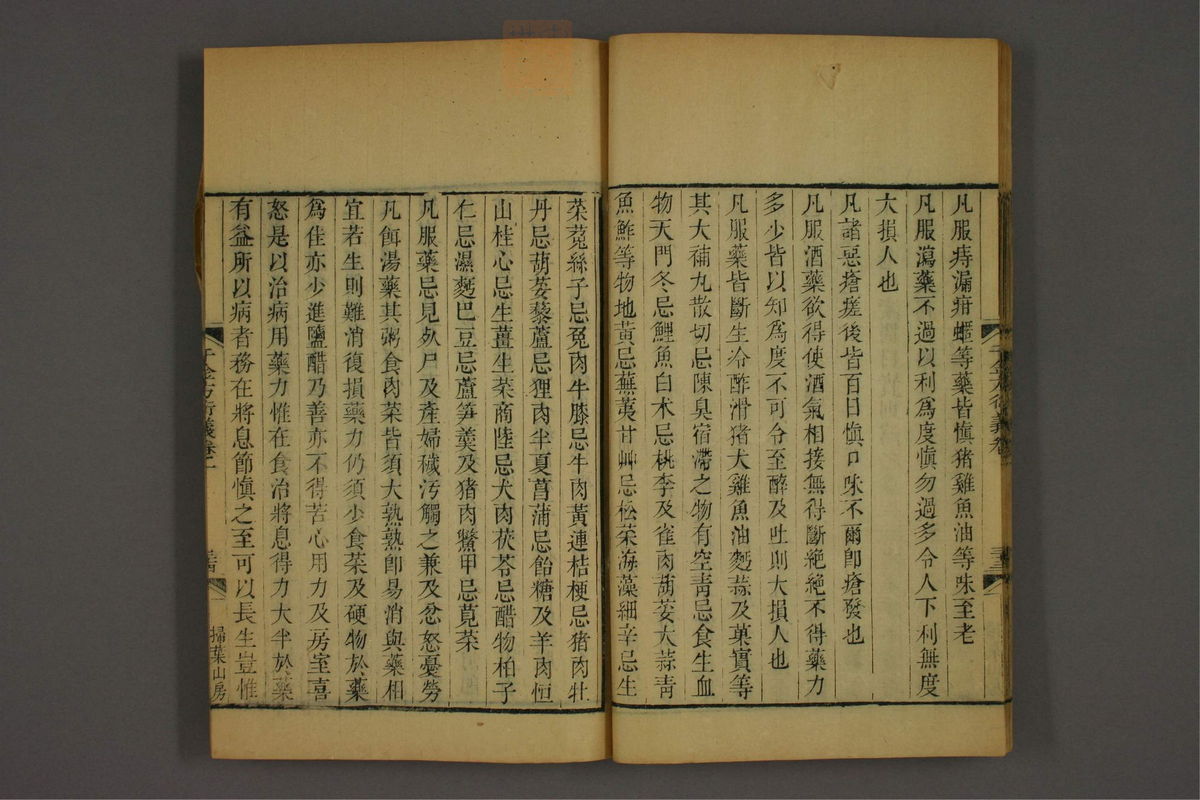 凡服痔漏疳䘌等藥皆慎猪雞魚油等味至老
凡服瀉藥不過以利爲度慎勿過多令人下利無度
大損人也
凡諸惡瘡瘥後皆百日慎口味不爾即瘡發也
凡服酒藥欲得使酒氣相接無得斷絶絶不得藥力
多少皆以知爲度不可令至醉及吐則大損人也
凡服藥皆斷生冷酢滑猪犬雞魚油麪蒜及菓實等
其大補丸散切忌陳臭宿滯之物有空靑忌食生血
物天門冬忌鯉魚白术忌桃李及雀肉葫荽大蒜靑
魚鮓等物地黃忌蕪荑甘艸忌菘菜海藻細辛忌生
菜菟絲子忌兔肉牛膝忌牛肉黃連桔梗忌猪肉牡
丹忌葫荽藜蘆忌狸肉半夏菖蒲忌飴糖及羊肉恒
山桂心忌生薑生菜商陸忌犬肉茯苓忌醋物柏子
仁忌濕麪巴豆忌蘆笋羹及猪肉鱉甲忌莧菜
凡服藥忌見死尸及產婦穢污觸之兼及忿怒憂勞
凡餌湯藥其粥食肉菜皆須大熟熟即易消與藥相
宜若生則難消復損藥力仍須少食菜及硬物於藥
爲佳亦少進鹽醋乃善亦不得苦心用力及房室喜
怒是以治病用藥力惟在食治將息得力大半於藥
有益所以病者務在將息節慎之至可以長生豈惟
千金方衍義卷一
掃葉山房